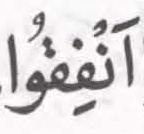 اَنْفِقُوا